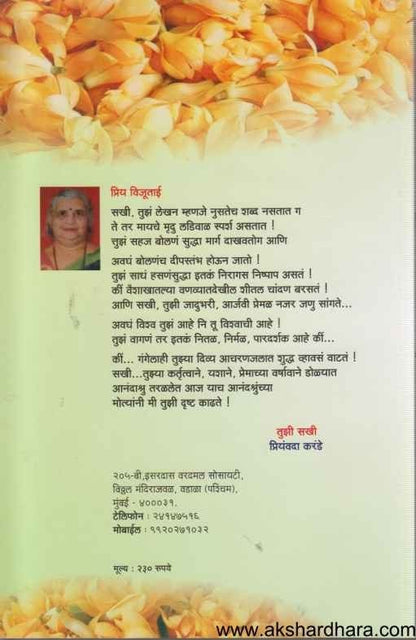 www.akshardhara.com
प्रिय विजूताई
सखी, तुझं लेखन म्हणजे नुसतेच शब्द नसतात ग
ते तर मायचे मृदु लडिवाळ स्पर्श असतात !
तुझं सहज बोलणं सुद्धा मार्ग दाखवतोग आणि
अवघं बोलणंच दीपस्तंभ होऊन जातो !
तुझं साधं हसणंसुद्धा इतकं निरागस निष्पाप असतं !
कीं वैशाखातल्या वणव्यातदेखील शीतल चांदण बरसतं !
आणि सखी, तुझी जादुभरी, आर्जवी प्रेमळ नजर जणु सांगते...
अवघं विश्व तुझं आहे नि तू विश्वाची आहे !
तुझं वागणं तर इतकं नितळ, निर्मळ, पारदर्शक आहे कीं...
कीं... गंगेलाही तुझ्या दिव्य आचरणजलात शुद्ध व्हावसं वाटतं !
सखी...तुझ्या कर्तृत्वाने, यशाने, प्रेमाच्या वर्षावाने डोळयात
आनंदाश्रु तरळलेत आज याच आनंदश्रुंच्या
मोत्यांनी मी तुझी दृष्ट काढते !
तुझी सखी
प्रियंवदा करंडे
२०५-बी,इसरदास वरदमल सोसायटी,
विठ्ठल मंदिराजवळ, वडाळा (पश्चिम),
मुंबई - ४०००३१.
टेलिफोन : २४१४७५१६
मोबाईल : ९९२०२७१०३२
मूल्य : २३० रुपये
www.akshardhara.com